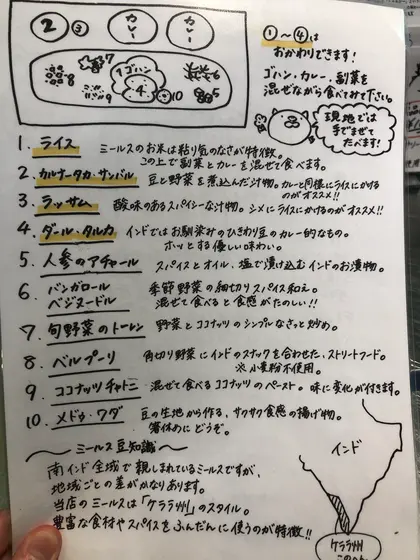 ② ③ カレー カレー
1 ゴハン
4
7
8
9
10
6
5
①〜④は
おかわりできます!
ゴハン・カレー、副菜を
混ぜながら食べてみて下さい。
現地では
手でまぜて
たべます!
1. ライス ミールスのお米は粘り気のなさが特徴。
この上で副菜とカレーを混ぜて食べます。
2. カルナータカ・サンバル 豆と野菜を煮込んだ汁物。カレーと同様にライスにかける
のがオススメ!!
3. ラッサム 酸味のあるスパイシーな汁物。シメにライスにかけるのがオススメ!!
4. ダール・タルカ インドではお馴染みのひきわり豆のカレー的なもの。
ホッとする優しい味わい。
5. 人参のアチャール スパイスとオイル、塩で漬け込むインドのお漬物。
6 バンガロール
ベジヌードル 季節野菜の細切りスパイス和え。
混ぜて食べると食感がたのしい!!
7 旬野菜のトーレン 野菜とココナッツのシンプルなさっと炒め。
8 ベルプーリ 角切り野菜にインドのスナックを合わせた、ストリートフード。
※小麦粉不使用。
9 ココナッツチャトニ 混ぜて食べるココナッツのペースト。味に変化が付きます。
10. メドゥ・ワダ 豆の生地から作る、サクサク食感の揚げ物。
箸休めにどうぞ。
〜ミールス豆知識〜
南インド全域で親しまれているミールスですが、
地域ごとの差がかなりあります。
当店のミールスは「ケララ州」のスタイル。
豊富な食材やスパイスをふんだんに使うのが特徴!!
インド
ケララ州
このへん